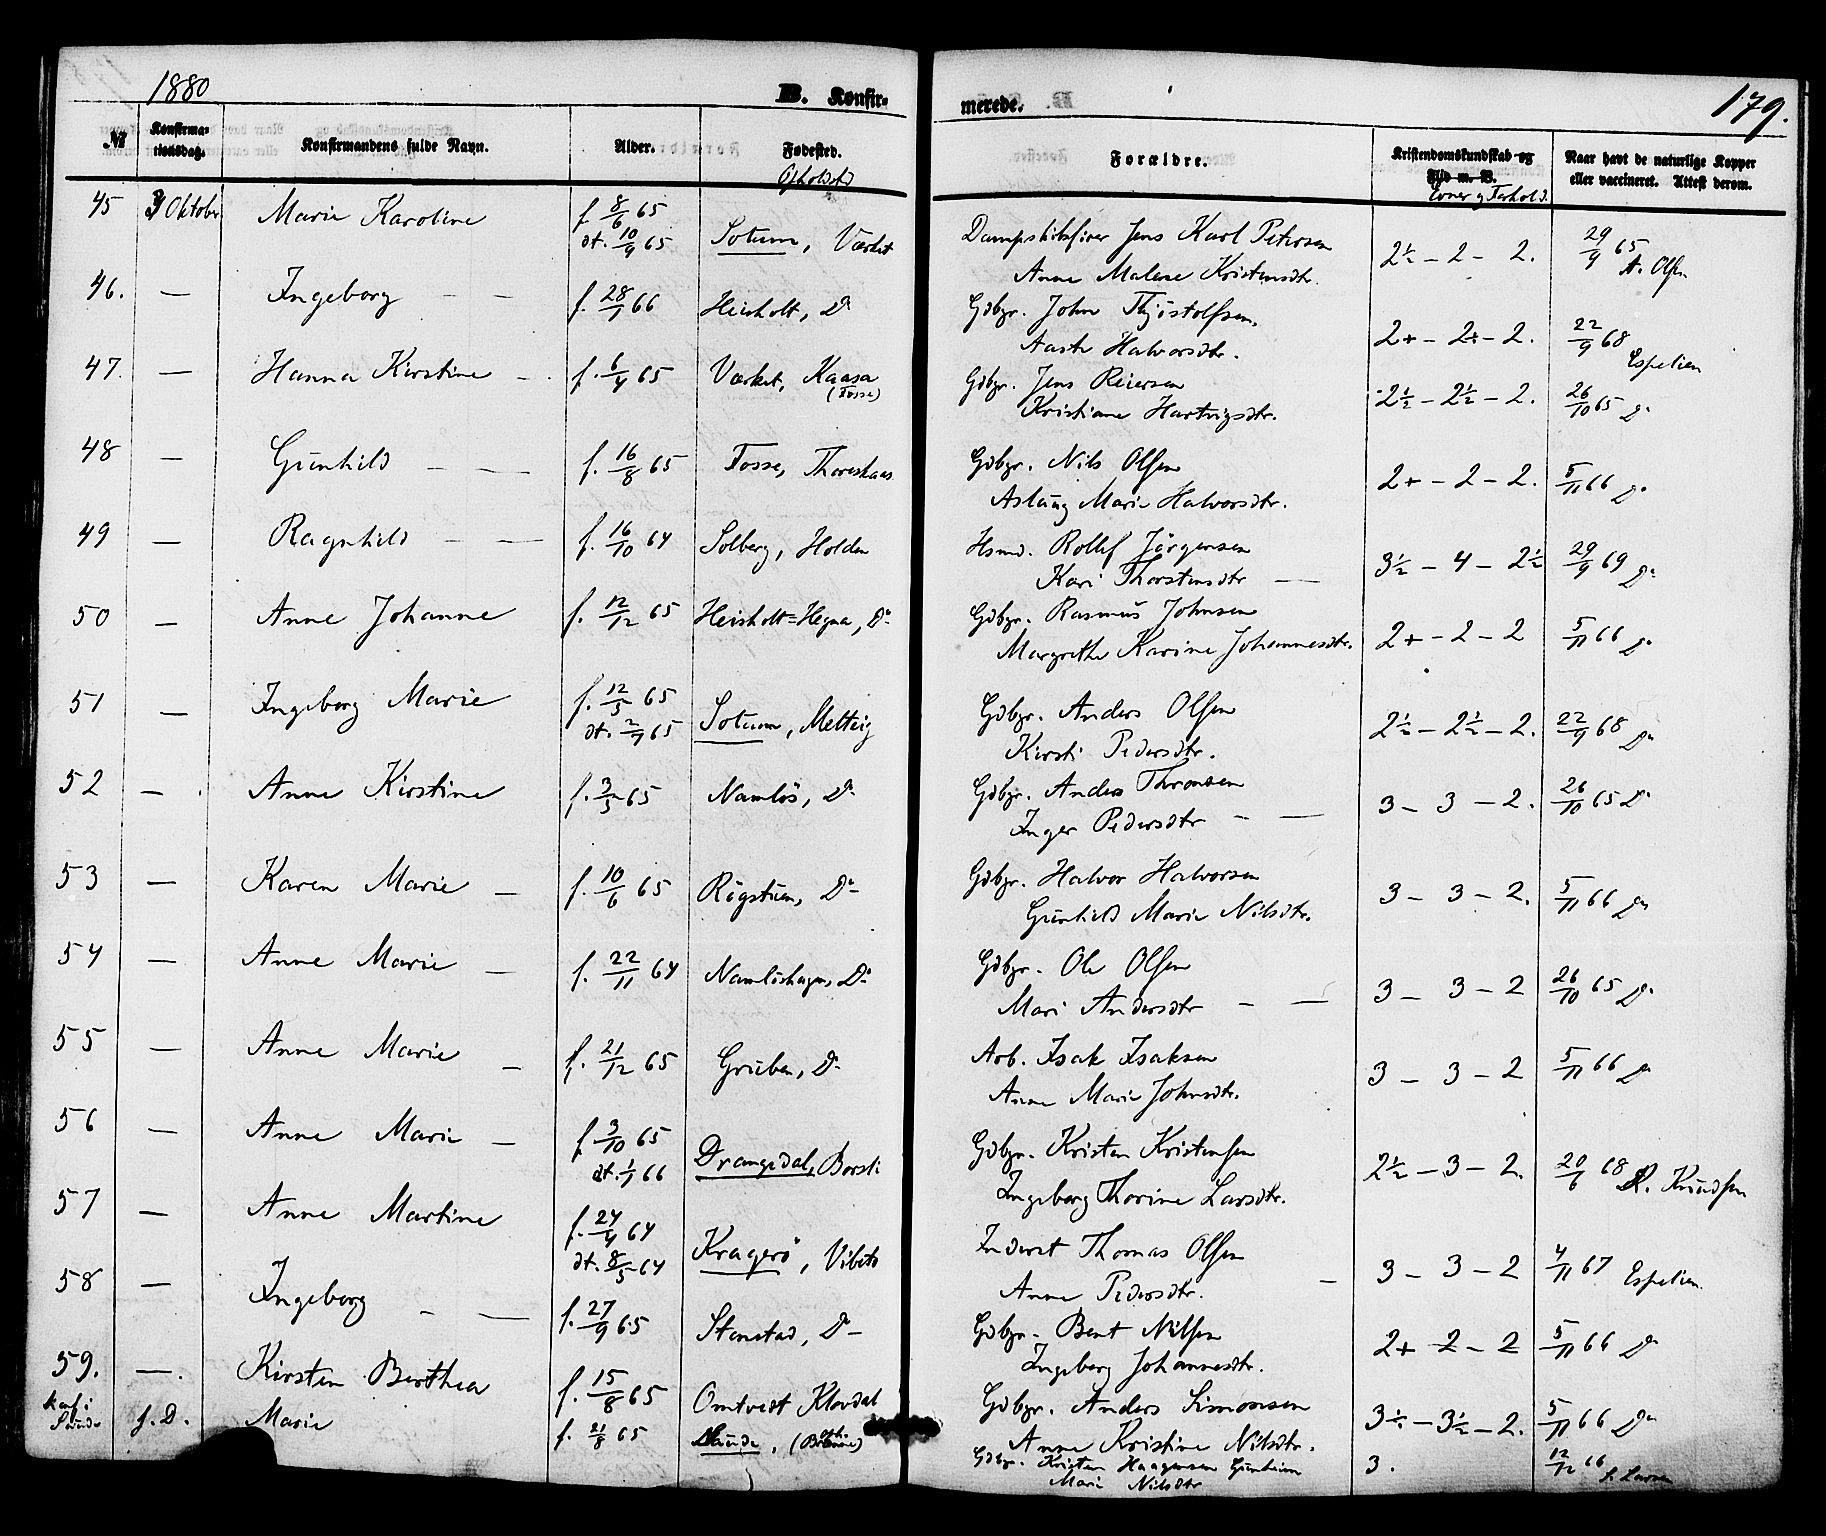 1880
B. Konfir-
merede.
179.
№
Konfirma-
tionsdag.
Konfirmandens fulde Navn.
Alder.
Fødested.
Opholdsted
Forældre.
Kristendomskundskab og
Flid m. V.
Evner og Forhold.
Naar havt de naturlige Kopper
eller vaccineret. Attest derom.
45 3 Oktober Marie Karoline f. 8/6 65 Dampskibsfører Jens Karl Petersen 2½ - 2 - 2. 29/9 65
dt. 10/9 65 Sotum, Værket Anne Malene Kristensdtr. A. Olsen
46. — Ingeborg — — f. 28/1 66 Heisholt, Do Gdbgr. John Thjøstolfsen. 2+ - 2+ - 2. 22/9 68
Aaste Halvorsdtr. Espelien
47. — Hanna Kirstine — f. 6/4 65 Værket, Kaasa Gdbgr. Jens Reiersen 2½ - 2½ - 2. 26/10 65 Do
(Fosse) Kristiane Hartvigsdtr.
48 — Gunhild — — f. 16/8 65 Fosse, Thoreskaas Gdbgr. Nils Olsen 2+ - 2 - 2. 5/11 66 Do
Aslaug Marie Halvorsdtr.
49 — Ragnhild — — f. 16/10 64 Solberg, Holden Hsmd. Rollef Jørgensen 3½ - 4 - 2½ 29/9 69 Do
Kari Thorstensdtr —
50 — Anne Johanne f. 12/12 65 Heisholt=Hegna, Do Gdbgr. Rasmus Johnsen 2+ - 2 - 2 5/11 66 Do
Margrethe Karine Johannesdtr.
51 — Ingeborg Marie f. 12/5 65 Gdbgr. Anders Olsen 2½ - 2½ - 2. 22/9 68 Do
dt. 2/7 65 Sotum, Melteig Kirsti Pedersdtr.
52 — Anne Kirstine f. 3/5 65 Namløs, Do Gdbgr. Anders Thronsen 3 - 3 - 2. 26/10 65 Do
Inger Pedersdtr — —
53 — Karen Marie — f. 10/6 65 Røgstuen, Do Gdbgr. Halvor Halvorsen 3 - 3 - 2. 5/11 66 Do
Gunhild Marie Nilsdtr.
54 — Anne Marie — f. 22/11 64 Namløshagen, Do Gdbgr. Ole Olsen 3 - 3 - 2 26/10 65 Do
Mari Andersdtr — —
55 — Anne Marie — f. 21/12 65 Gruben, Do Arb. Isak Isaksen 3 - 3 - 2 5/11 66 Do
Anne Marie Johnsdtr.
56 — Anne Marie — f. 3/10 65 Gdbgr. Kristen Kristensen 2½ - 3 - 2. 20/6 68
dt. 1/1 66 Drangedal, Borsti Ingeborg Thorine Larsdtr. R. Knudsen
57 — Anne Martine f. 24/4 64 Inderst Thomas Olsen 3 - 3 - 2 4/11 67 Espelien
dt. 8/5 64 Kragerø, Vibeto Anne Pedersdtr. —
58 — Ingeborg — — f. 27/9 65 Stenstad, Do Gdbgr. Bent Nilsen 2+ - 2 - 2 5/11 66 Do
Ingeborg Johannesdtr.
59. — Kirsten Berthea f. 15/8 65 Omtvedt Klovdal Gdbgr. Anders Simonsen 3½ - 3½ - 2. 5/11 66 Do
Anne Kristine Nilsdtr.
konf i
Lunde f. D. Marie f. 21/8 65 Lunde, Gdbgr. Kristen Haagensen Gunheim 3. 12/12 66
Mari Nilsdtr L. Larsen